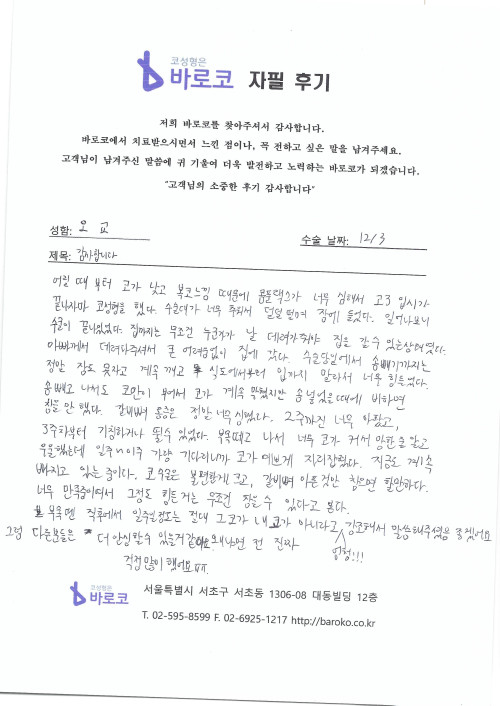 코성형은
바로코 자필 후기
저희 바로코를 찾아주셔서 감사합니다.
바로코에서 치료받으시면서 느낀 점이나, 꼭 전하고 싶은 말을 남겨주세요.
고객님이 남겨주신 말씀에 귀 기울여 더욱 발전하고 노력하는 바로코가 되겠습니다.
"고객님의 소중한 후기 감사합니다"
성함: 오 교
수술 날짜: 12/3
제목: 감사합니다
어릴 때 부터 코가 낮고 복코느낌 때문에 콤플렉스가 너무 심해서 고3 입시가
끝나자마 코성형을 했다. 수술대가 너무 추워서 덜덜 떨며 잠에 들었다. 일어나보니
수술이 끝나있었다. 집까지는 무조건 누군가가 날 데려가줘야 집을 갈 수 있는상태였다.
아빠께서 데려다주셔서 큰 어려움없이 집에 갔다. 수술당일에서 솜빼기까지는
정말 잠도 못자고 계속 깨고 식도에서부터 입까지 말라서 너무 힘들었다.
솜빼고 나서도 코안이 부어서 코가 계속 막혔지만 솜 넣었을때에 비하면
참을 만 했다. 갈비뼈 통증은 정말 너무 심했다. 2주까진 너무 아팠고,
3주차부터 기침하거나 뛸수 있었다. 부목떼고 나서 너무 코가 커서 망한줄 알고
우울했는데 일주~이주 가량 기다리니까 코가 예쁘게 자리잡혔다. 지금도 계속
빠지고 있는 중이다. 코수술은 불편한게 크고, 갈비뼈 아픈것만 참으면 할만하다.
너무 만족중이여서 그정도 힘든거는 무조건 참을 수 있다고 본다.
부목 뗀 직후에서 일주일정도는 절대 그코가 내 코가 아니라고 강조해서 말씀해주셨음 좋겠어요
그럼 다른분들은 더 안심할수 있을거같아요 왜냐면 전 진짜
엉엉!!!
걱정많이 했어요 ㅠㅠ.
코성형은
바로코
서울특별시 서초구 서초동 1306-08 대동빌딩 12층
T. 02-595-8599 F. 02-6925-1217 http://baroko.co.kr